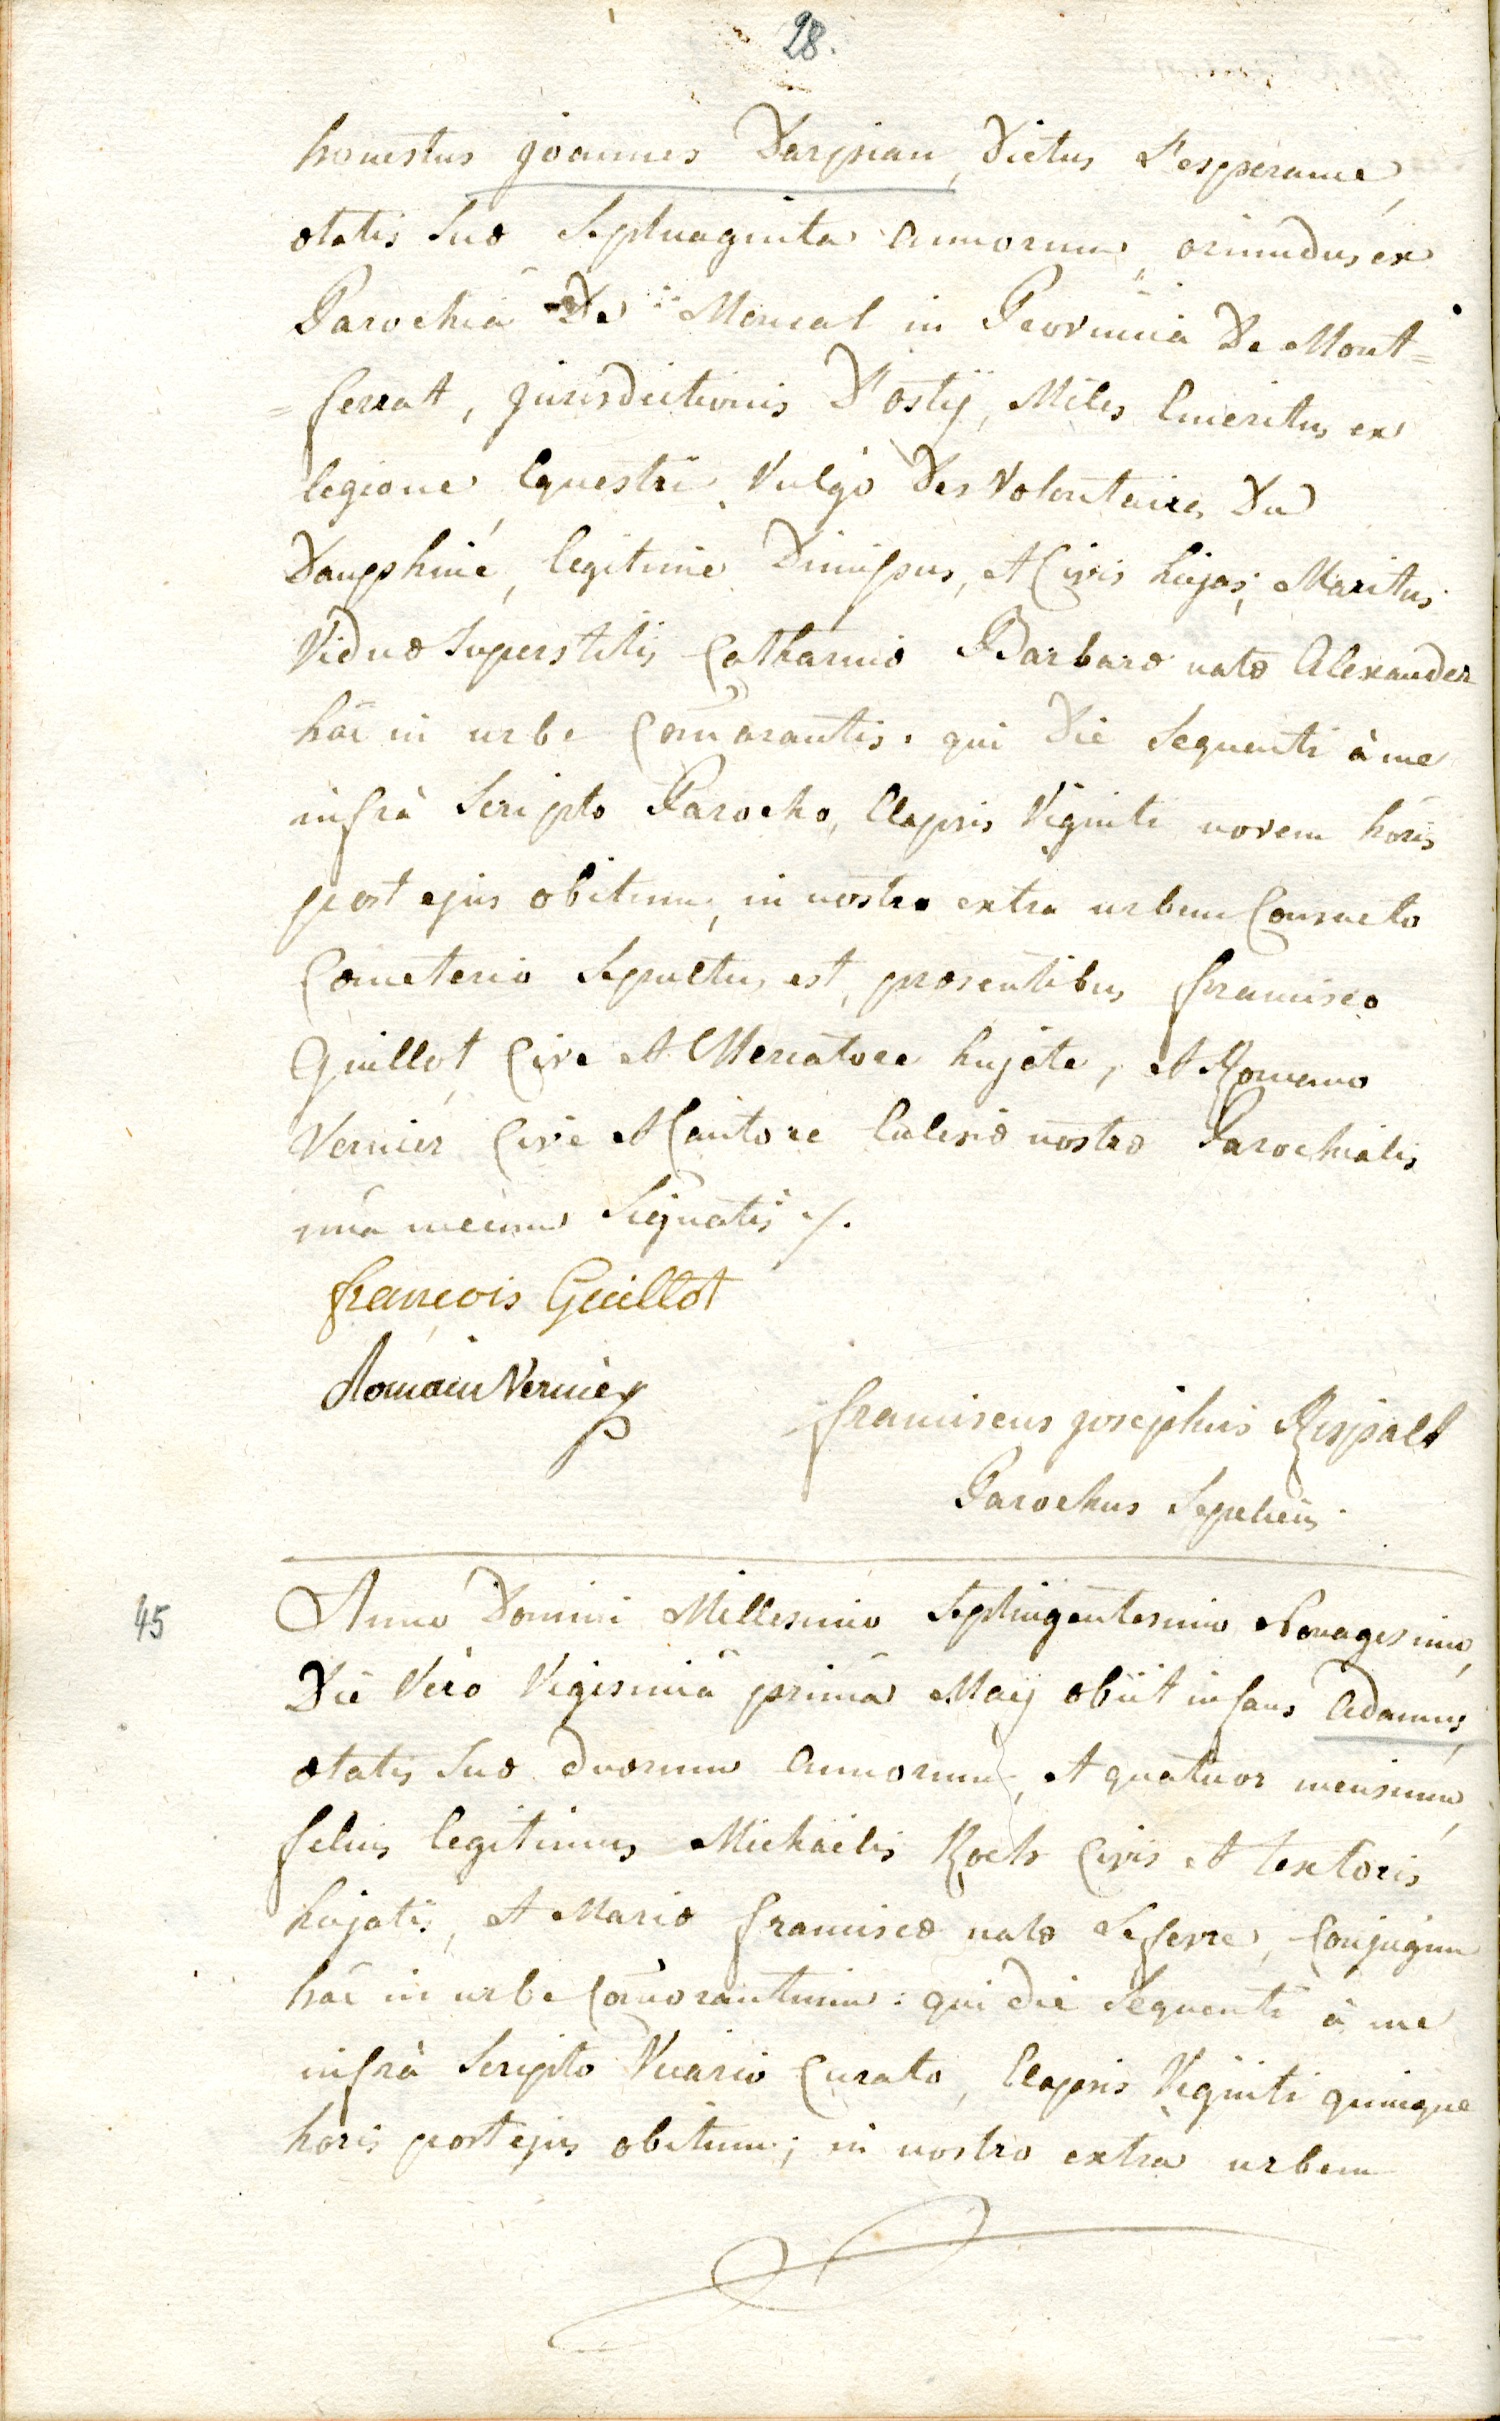 28.
honestus joannes Darpian, Dictus L'esperance,
ætatis suæ septuaginta annorum, oriundus ex
Parochiâ De Moncal in Provinciâ De Mont=
=ferrat, jurisdictionis D'ostÿ, Miles Emeritus ex
legione Equestri Vulgò Des Volontaires Du
Dauphiné, legitimè Dimissus, et Civis hujas, Maritus
Viduæ superstitis Catharinæ Barbaræ natæ Alexander
hâc in urbe Com̄orantis. qui Die sequenti à me
infrà scripto Parocho, Elapsis Viginti novem horis
post ejus obitum, in nostro extra urbem Consueto
Cœmeterio sepultus est, præsentibus francisco
Guillot, Cive et Mercatore hujate, et Romano
Vernier Cive et Cantore Ecclesiæ nostræ Parochialis
unà mecum signatis ./.
françois Guillot
Romain Vernier
franciscus josephus Rispalt
Parochus sepeliens.
45
Anno Domini Millesimo septingentesimo Nonagesimo,
Die Verò Vigesimâ primâ Maÿ obiit infans Adamus,
ætatis suæ duorum annorum, et quatuor mensium,
filius legitimus Michaëlis Koch Civis et textoris
hujatis, et Mariæ franciscæ natæ Lefevre, Conjugum
hâc in urbe Com̄orantium: qui die sequenti à me
infrà scripto Vicario Curato, Elapsis Viginti quinque
horis post ejus obitum; in nostro extra urbem